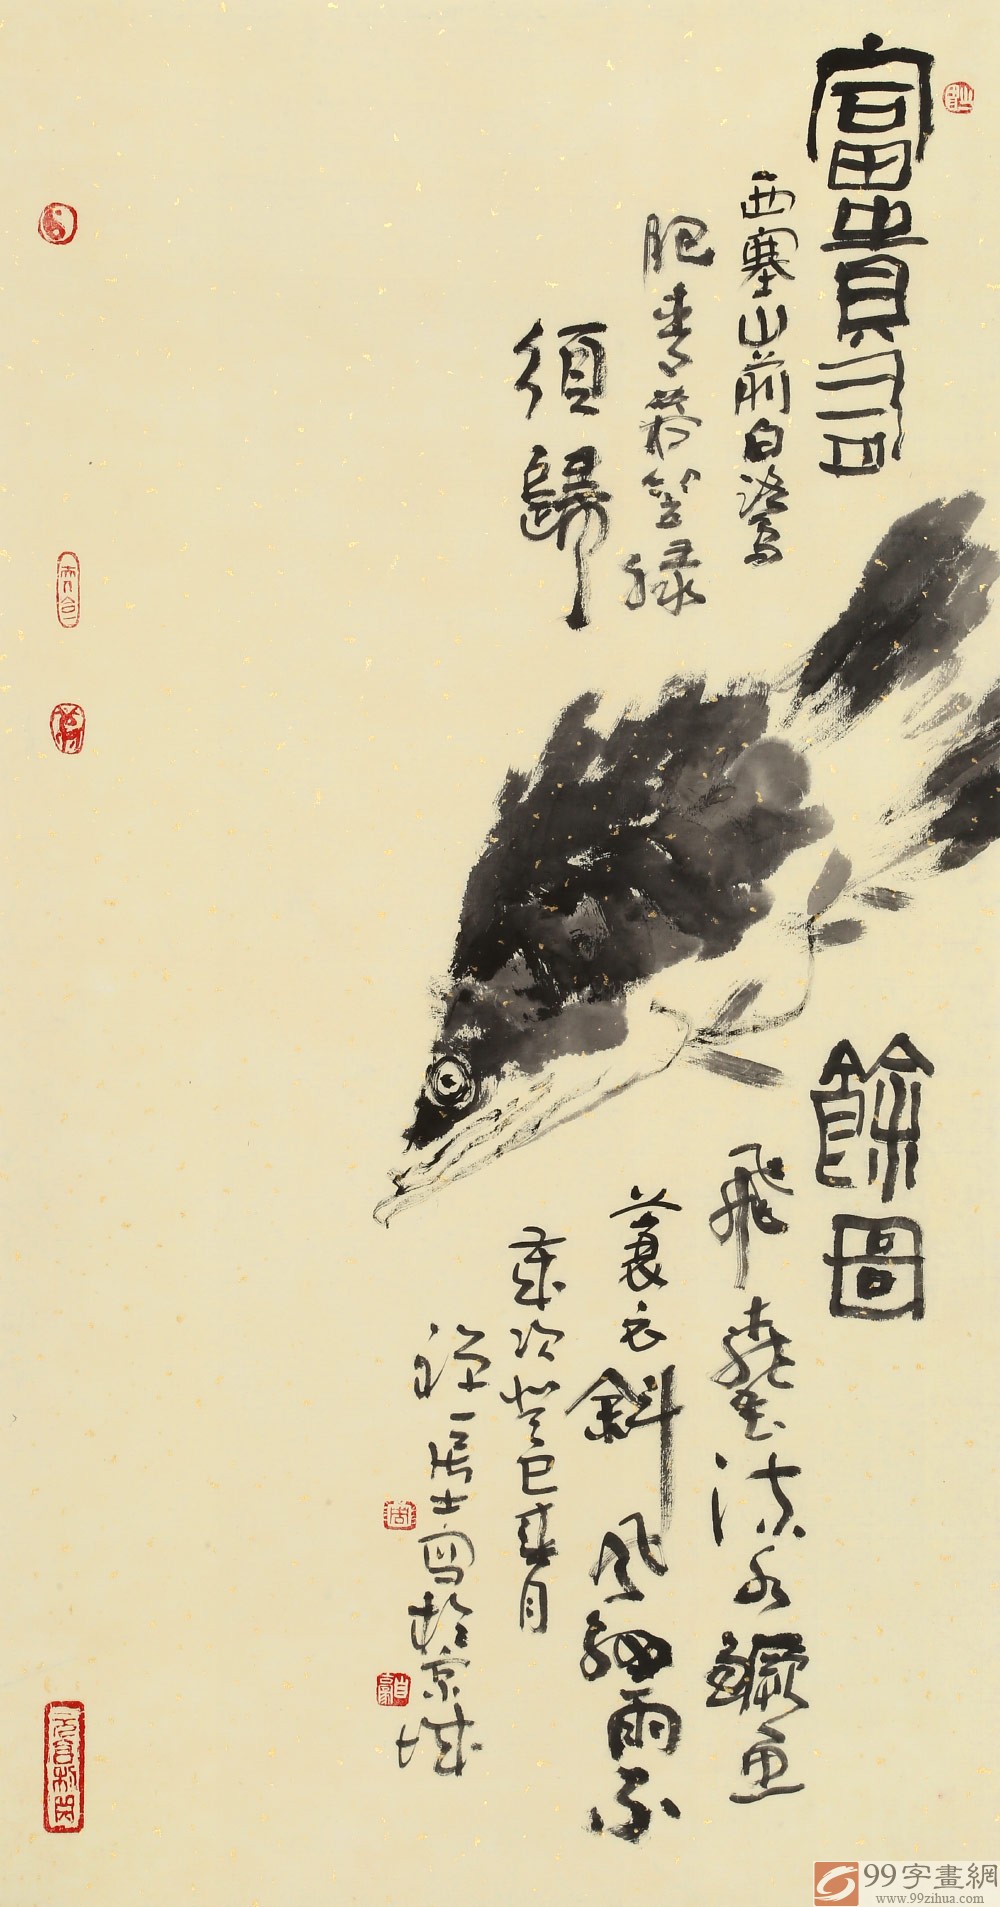 富貴有餘圖
西塞山前白鷺飛桃花流水鱖魚
肥青箬笠綠蓑衣斜風細雨不
須歸
歲次癸巳月
禪一居士寫於京城
周
99字畫網
www.99zihua.com